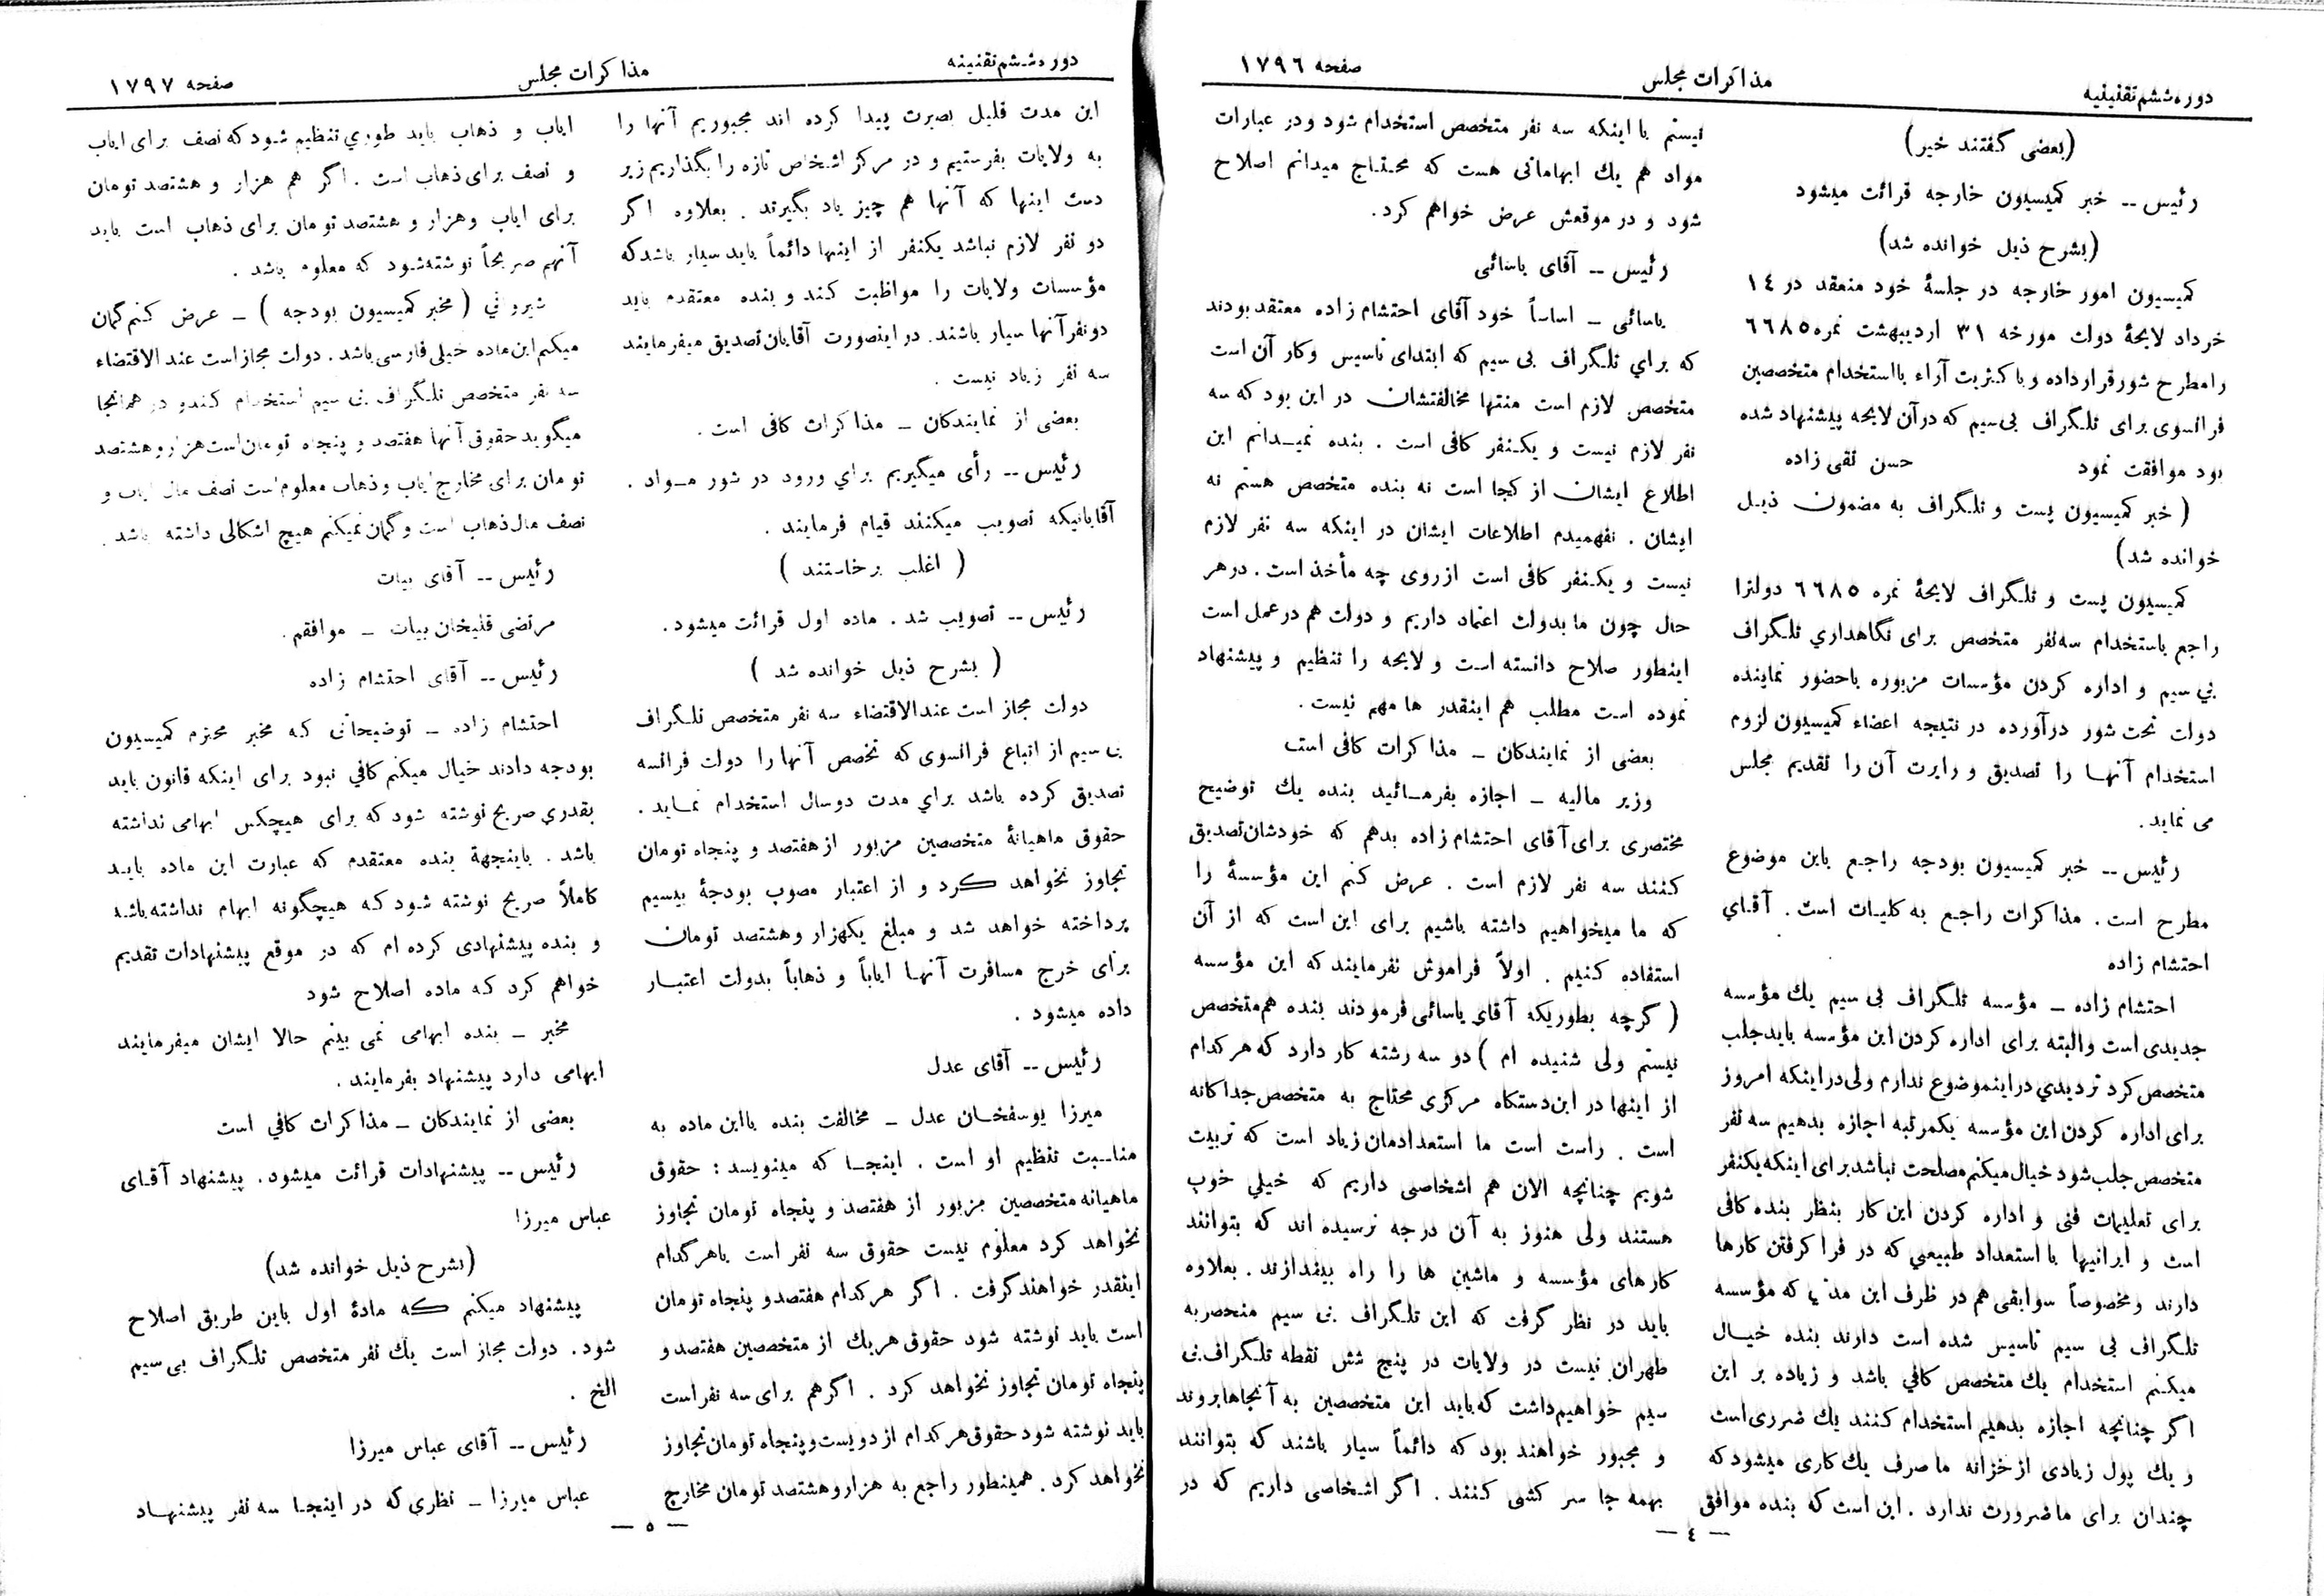 دوره ششم تقنینیه
مذاکرات مجلس
صفحه ١٧٩٦
(بعضی گفتند خیر)
رئیس -- خبر کمیسیون خارجه قرائت میشود
(بشرح ذیل خوانده شد)
کمیسیون امور خارجه در جلسهٔ خود منعقد در ١٤
خرداد لایحهٔ دولت مورخه ٣١ اردیبهشت نمره ٦٦٨٥
را مطرح شور قرار داده و با کثریت آراء با استخدام متخصصین
فرانسوی برای تلگراف بی‌سیم که در آن لایحه پیشنهاد شده
بود موافقت نمود حسن تقی زاده
( خبر کمیسیون پست و تلگراف به مضمون ذیل
خوانده شد)
کمیسیون پست و تلگراف لایحهٔ نمره ٦٦٨٥ دولترا
راجع باستخدام سه نفر متخصص برای نگاهداري تلگراف
بي سیم و اداره کردن مؤسسات مزبوره باحضور نماینده
دولت تحت شور درآورده در نتیجه اعضاء کمیسیون لزوم
استخدام آنها را تصدیق و راپرت آن را تقدیم مجلس
می نماید.
رئیس -- خبر کمیسیون بودجه راجع باین موضوع
مطرح است . مذاکرات راجع به کلیات است . آقاي
احتشام زاده
احتشام زاده ـ مؤسسه تلگراف بی سیم یك مؤسسه
جدیدی است والبته برای اداره کردن این مؤسسه باید جلب
متخصص کرد تردیدي در اینموضوع ندارم ولی در اینکه امروز
برای اداره کردن این مؤسسه یکمرتبه اجازه بدهیم سه نفر
متخصص جلب شود خیال میکنم مصلحت نباشد برای اینکه یکنفر
برای تعلیمات فنی و اداره کردن این کار بنظر بنده کافی
است و ایرانیها با استعداد طبیعي که در فرا گرفتن کارها
دارند و مخصوصاً سوابقی هم در ظرف این مدتی که مؤسسه
تلگراف بی سیم تاسیس شده است دارند بنده خیال
میکنم استخدام یك متخصص کافي باشد و زیاده بر این
اگر چنانچه اجازه بدهیم استخدام کنند یك ضرری است
و یك پول زیادی از خزانه ما صرف یك کاری میشود که
چندان برای ما ضرورت ندارد . این است که بنده موافق
نیستم با اینکه سه نفر متخصص استخدام شود ودر عبارات
مواد هم یك ابهاماتی هست که محتاج میدانم اصلاح
شود و در موقعش عرض خواهم کرد.
رئیس -- آقای یاسائی
یاسائی ـ اساساً خود آقای احتشام زاده معتقد بودند
که براي تلگراف بی سیم که ابتدای تاسیس وکار آن است
متخصص لازم است منتها مخالفتشان در این بود که سه
نفر لازم نیست و یکنفر کافی است . بنده نمیدانم این
اطلاع ایشان از کجا است نه بنده متخصص هستم نه
ایشان . نفهمیدم اطلاعات ایشان در اینکه سه نفر لازم
نیست و یکنفر کافی است از روی چه مأخذ است . در هر
حال چون ما بدولت اعتماد داریم و دولت هم در عمل است
اینطور صلاح دانسته است و لایحه را تنظیم و پیشنهاد
نموده است مطلب هم اینقدر ها مهم نیست .
بعضی از نمایندگان ـ مذاکرات کافی است
وزیر مالیه ـ اجازه بفرمائید بنده یك توضیح
مختصری برای آقای احتشام زاده بدهم که خودشان تصدیق
کنند سه نفر لازم است . عرض کنم این مؤسسهٔ را
که ما میخواهیم داشته باشیم برای این است که از آن
استفاده کنیم . اولاً فراموش نفرمایند که این مؤسسه
( گرچه بطوریکه آقاي یاسائی فرمودند بنده هم متخصص
نیستم ولی شنیده ام ) دو سه رشته کار دارد که هر کدام
از اینها در این دستگاه مرکزی محتاج به متخصص جداگانه
است . راست است ما استعدادمان زیاد است که تربیت
شویم چنانچه الان هم اشخاصی داریم که خیلي خوب
هستند ولی هنوز به آن درجه نرسیده اند که بتوانند
کارهای مؤسسه و ماشین ها را راه بیندازند . بعلاوه
باید در نظر گرفت که این تلگراف بی سیم منحصر به
طهران نیست در ولایات در پنج شش نقطه تلگراف بی
سیم خواهیم داشت که باید این متخصصین به آنجاها بروند
و مجبور خواهند بود که دائماً سیار باشند که بتوانند
بهمه جا سر کشی کنند . اگر اشخاصی داریم که در
— ٤ —
دوره ششم تقنینیه
مذاکرات مجلس
صفحه ١٧٩٧
این مدت قلیل بصیرت پیدا کرده اند مجبوریم آنها را
به ولایات بفرستیم و در مرکز اشخاص تازه را بگذاریم زیر
دست اینها که آنها هم چیز یاد بگیرند . بعلاوه اگر
دو نفر لازم نباشد یکنفر از اینها دائماً باید سیار باشد که
مؤسسات ولایات را مواظبت کند و بنده معتقدم باید
دو نفر آنها سیار باشند. در اینصورت آقایان تصدیق میفرمایند
سه نفر زیاد نیست .
بعضی از نمایندگان ـ مذاکرات کافی است .
رئیس -- رأی میگیریم براي ورود در شور مواد .
آقایانیکه تصویب میکنند قیام فرمایند .
( اغلب برخاستند )
رئیس -- تصویب شد . ماده اول قرائت میشود.
( بشرح ذیل خوانده شد )
دولت مجاز است عندالاقتضاء سه نفر متخصص تلگراف
بی سیم از اتباع فرانسوی که تخصص آنها را دولت فرانسه
تصدیق کرده باشد براي مدت دوسال استخدام نماید .
حقوق ماهیانهٔ متخصصین مزبور از هفتصد و پنجاه تومان
تجاوز نخواهد کرد و از اعتبار مصوب بودجهٔ بیسیم
پرداخته خواهد شد و مبلغ یکهزار وهشتصد تومان
برای خرج مسافرت آنها ایاباً و ذهاباً بدولت اعتبار
داده میشود .
رئیس -- آقای عدل
میرزا یوسفخان عدل ـ مخالفت بنده بااین ماده به
مناسبت تنظیم او است . اینجا که مینویسد : حقوق
ماهیانه متخصصین مزبور از هفتصد و پنجاه تومان تجاوز
نخواهد کرد معلوم نیست حقوق سه نفر است یا هر کدام
اینقدر خواهند گرفت . اگر هر کدام هفتصد و پنجاه تومان
است باید نوشته شود حقوق هر یك از متخصصین هفتصد و
پنجاه تومان تجاوز نخواهد کرد . اگر هم برای سه نفر است
باید نوشته شود حقوق هر کدام از دویست و پنجاه تومان تجاوز
نخواهد کرد . همینطور راجع به هزار و هشتصد تومان مخارج
ایاب و ذهاب باید طوري تنظیم شود که نصف برای ایاب
و نصف برای ذهاب است . اگر هم هزار و هشتصد تومان
برای ایاب وهزار و هشتصد تومان برای ذهاب است باید
آنهم صریحاً نوشته‌شود که معلوم باشد .
شیروانی ( مخبر کمیسیون بودجه ) ـ عرض کنم گمان
میکنم این ماده خیلی فارسی باشد . دولت مجاز است عند الاقتضاء
سه نفر متخصص تلگراف بی سیم استخدام کند و در همانجا
میگوید حقوق آنها هفتصد و پنجاه تومان است هزار و هشتصد
تومان برای مخارج ایاب و ذهاب معلوم است نصف مال ایاب و
نصف مال ذهاب است و گمان نمیکنم هیچ اشکالی داشته باشد .
رئیس -- آقای بیات
مرتضی قلیخان بیات ـ موافقم.
رئیس -- آقای احتشام زاده
احتشام زاده ـ توضیحاتی که مخبر محترم کمیسیون
بودجه دادند خیال میکنم کافي نبود برای اینکه قانون باید
بقدري صریح نوشته شود که برای هیچکس ابهامی نداشته
باشد . باینجهة بنده معتقدم که عبارت این ماده باید
کاملاً صریح نوشته شود که هیچگونه ابهام نداشته باشد
و بنده پیشنهادی کرده ام که در موقع پیشنهادات تقدیم
خواهم کرد که ماده اصلاح شود
مخبر ـ بنده ابهامی نمی بینم حالا ایشان میفرمایند
ابهامی دارد پیشنهاد بفرمایند .
بعضی از نمایندگان ـ مذاکرات کافي است
رئیس -- پیشنهادات قرائت میشود . پیشنهاد آقای
عباس میرزا
(بشرح ذیل خوانده شد)
پیشنهاد میکنم که مادهٔ اول باین طریق اصلاح
شود . دولت مجاز است یك نفر متخصص تلگراف بی سیم
الخ .
رئیس -- آقای عباس میرزا
عباس میرزا ـ نظری که در اینجا سه نفر پیشنهاد
— ٥ —